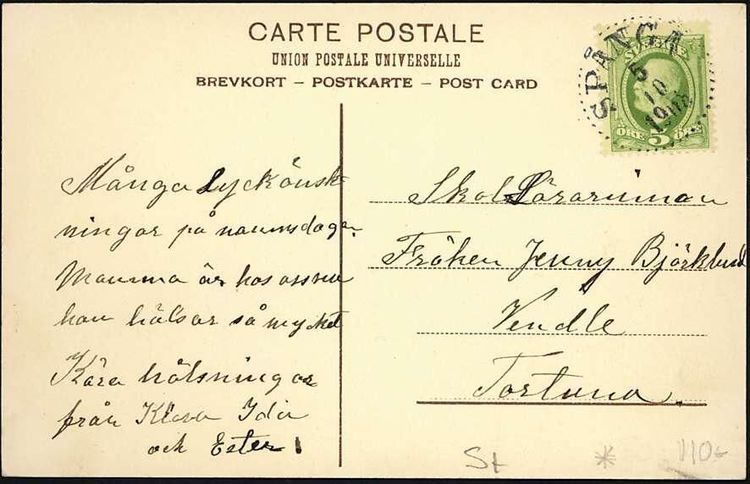 CARTE POSTALE
UNION POSTALE UNIVERSELLE
BREVKORT – POSTKARTE – POST CARD
SPÅNGA
5
10
SVERIGE
ÖRE 5 ÖRE
Många Lyckönsk-
ningar på namnsdagen
Mamma är hos
hon hälsar så mycket
Kära hälsningar
från Klara Ida
och Ester!
Skol Lärarinnan
Fröken Jenny Björklund
Vendle
Tortuna.
St
110-